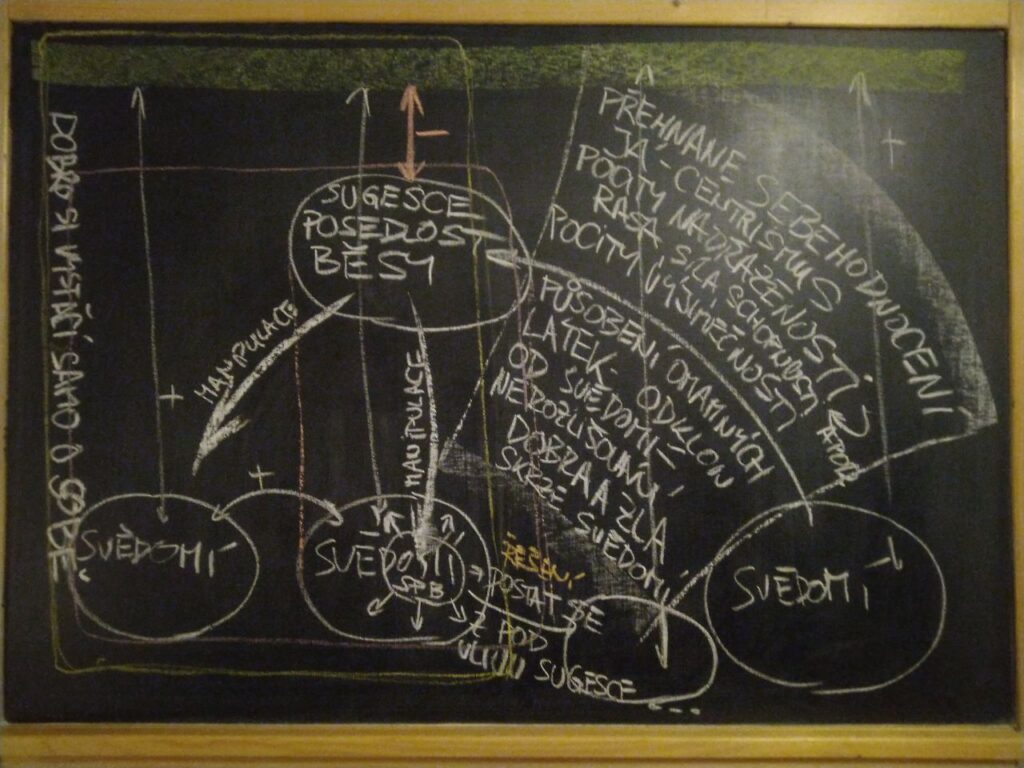 DOBRO SI VYSTAČÍ SAMO O SOBĚ
SUGESCE
POSEDLOST
BĚSY
PŘEHNANÉ SEBEHODNOCENÍ
JÁ-CENTRISMUS
POCITY NADŘAZENOSTI
RASA SÍLA SCHOPNOSTI
POCITY VÝJIMEČNOSTI
PŮSOBENÍ OMAMNÝCH
LÁTEK. ODKLON
OD SVĚDOMÍ-
NEROZLIŠOVÁNÍ
DOBRA A ZLA
SKRZE SVĚDOMÍ
MANIPULACE
MANIPULACE
+
+
+
-
SVĚDOMÍ
SVĚDOMÍ
SPB
SVĚDOMÍ
ŘEŠENÍ
DOSTAT SE
Z POD
VLIVU SUGESCE